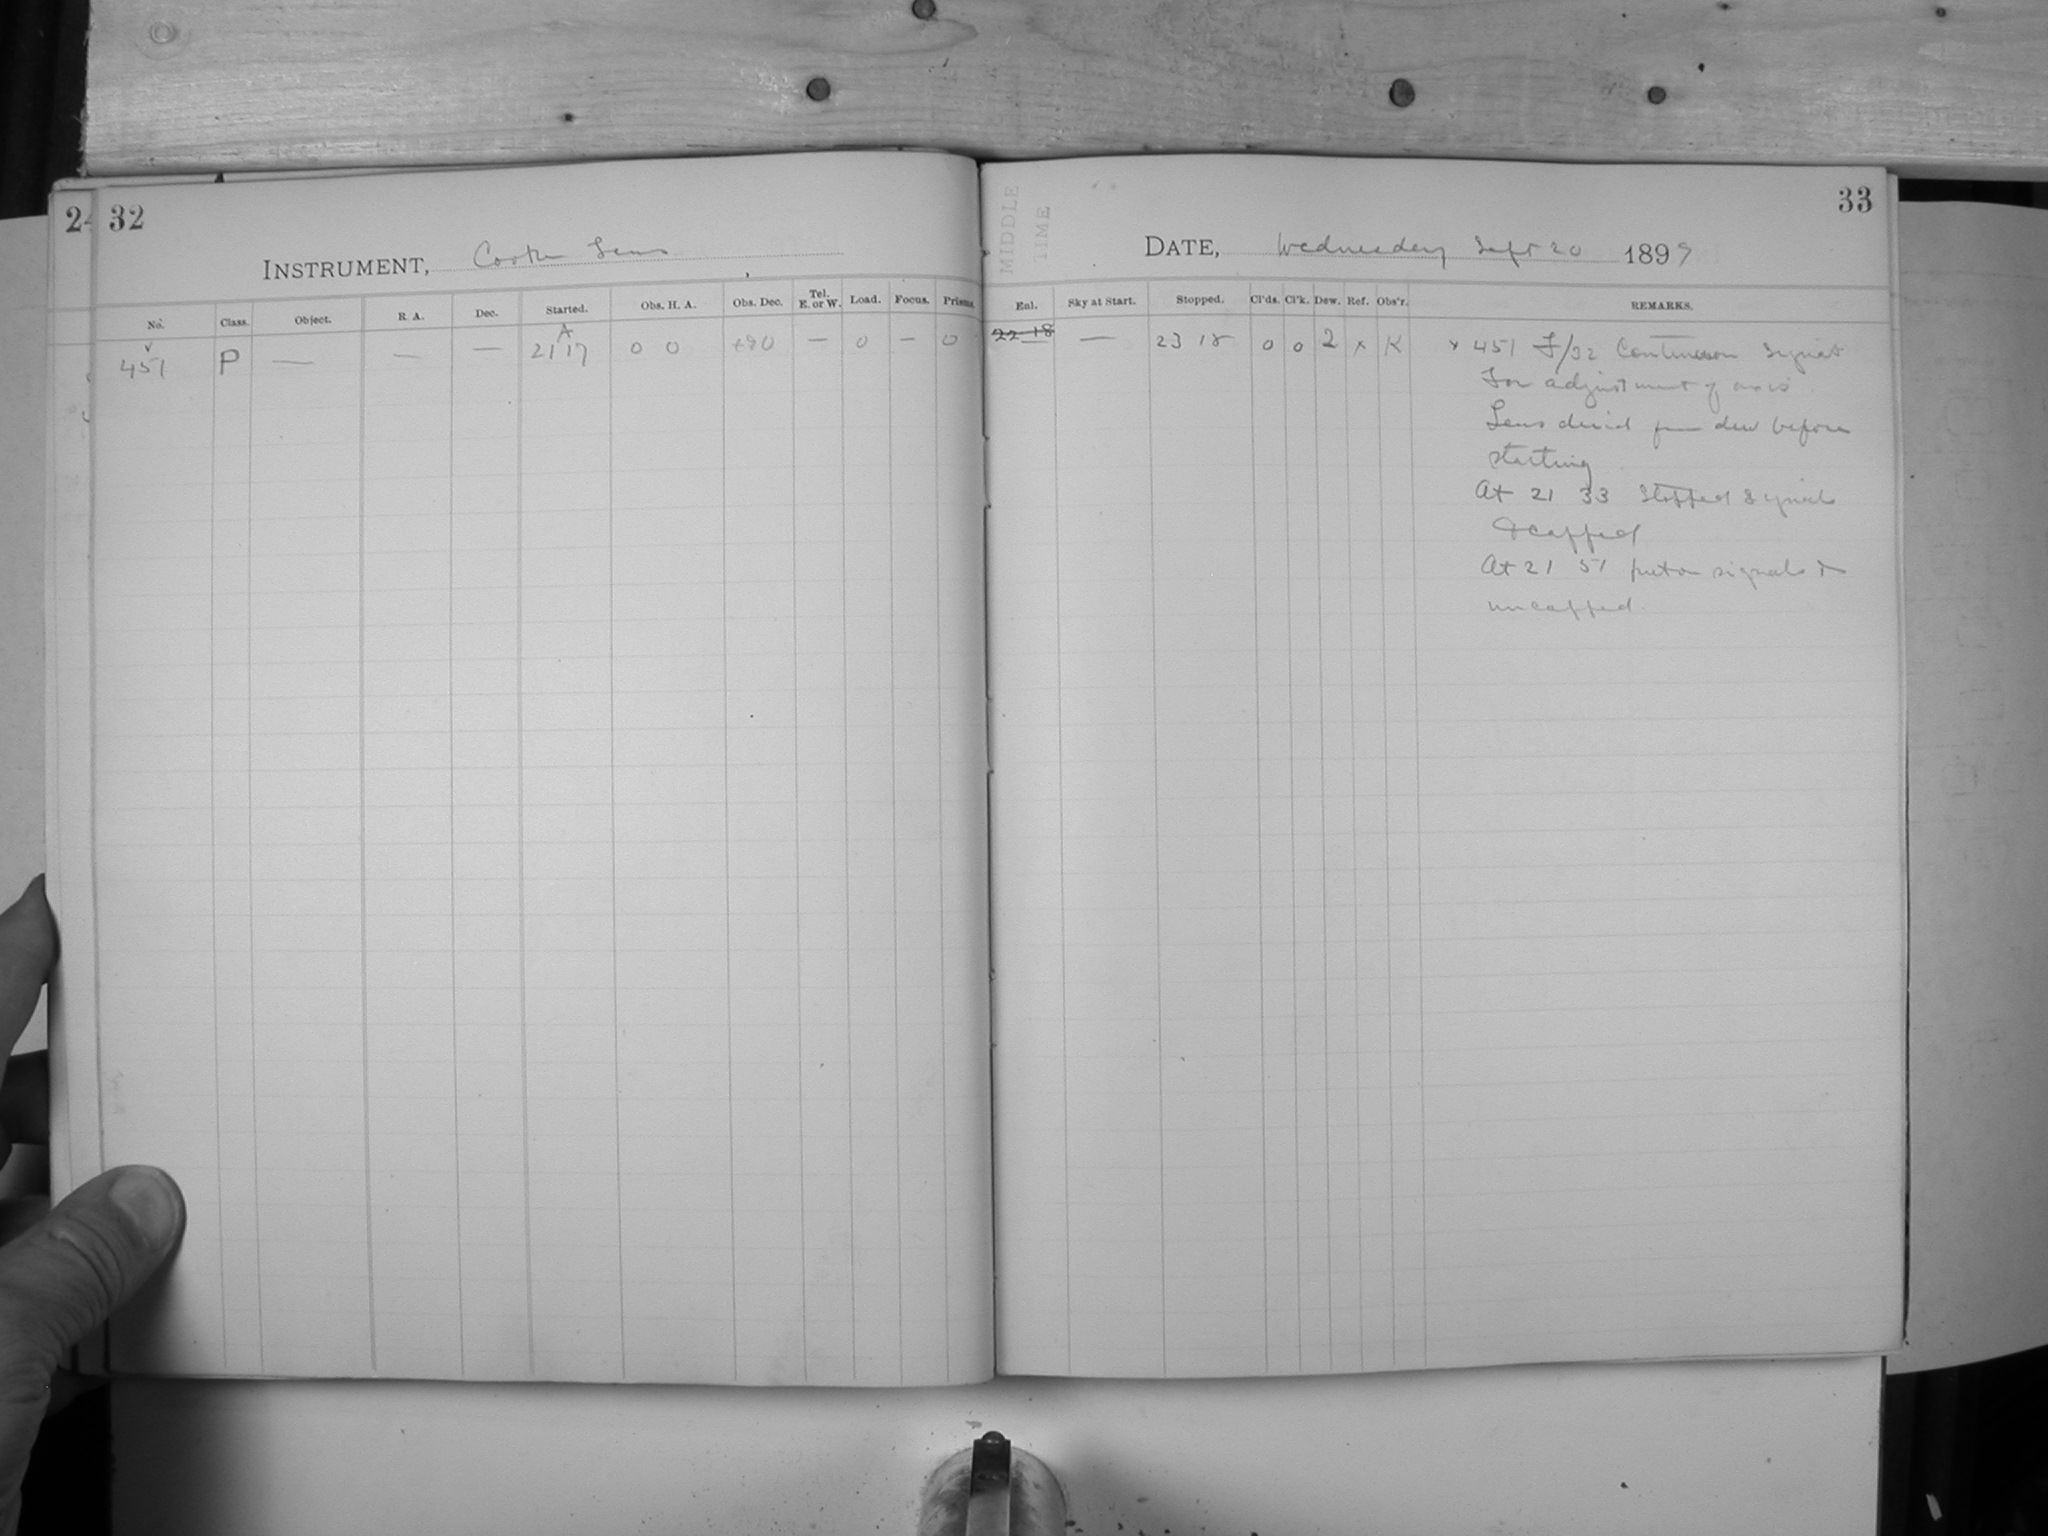 24 32
INSTRUMENT, Cooke Lens
No. Class. Object. R. A. Dec. Started. Obs. H. A. Obs. Dec. Tel. E. or W. Load. Focus. Prisms.
v A
451 P — — — 21 17 0 0 +80 — 0 — 0
MIDDLE
TIME
33
DATE, Wednesday Sept 20 1899
Enl. Sky at Start. Stopped. Cl'ds. Cl'k. Dew. Ref. Obs'r. REMARKS.
22 18 — 23 18 0 0 2 x K x 451 F/32 Continuous Signals
For adjustment of axis
Lens dried from dew before
starting
At 21 33 Stopped Signals
& capped
At 21 51 put on signals &
uncapped.